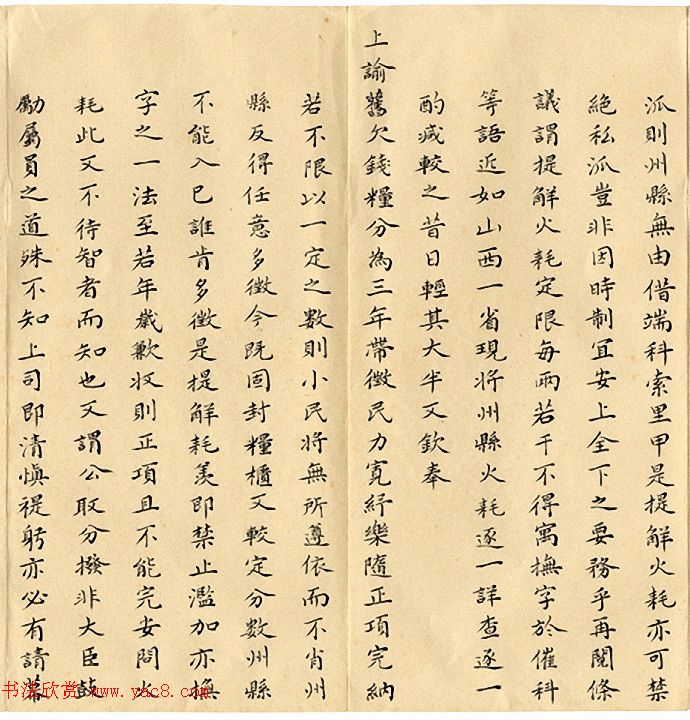 派則州縣無由借端科索里甲是提解火耗亦可禁
絕私派豈非因時制宜安上全下之要務乎再閱條
議謂提解火耗定限每兩若干不得寓撫字於催科
等語近如山西一省現將州縣火耗逐一詳查逐一
酌減較之昔日輕其大半又欽奉
上諭舊欠錢糧分為三年帶徵民力寬紓樂隨正項完納
若不限以一定之數則小民將無所遵依而不肖州
縣反得任意多徵今既固封糧櫃又較定分數州縣
不能入己誰肯多徵是提解耗羨即禁止濫加亦撫
字之一法至若年歲歉收則正項且不能完安問火
耗此又不待智者而知也又謂公取分撥非大臣鼓
勵屬員之道殊不知上司即清慎禔躬亦必有請幕
书法欣赏 www.yac8.com